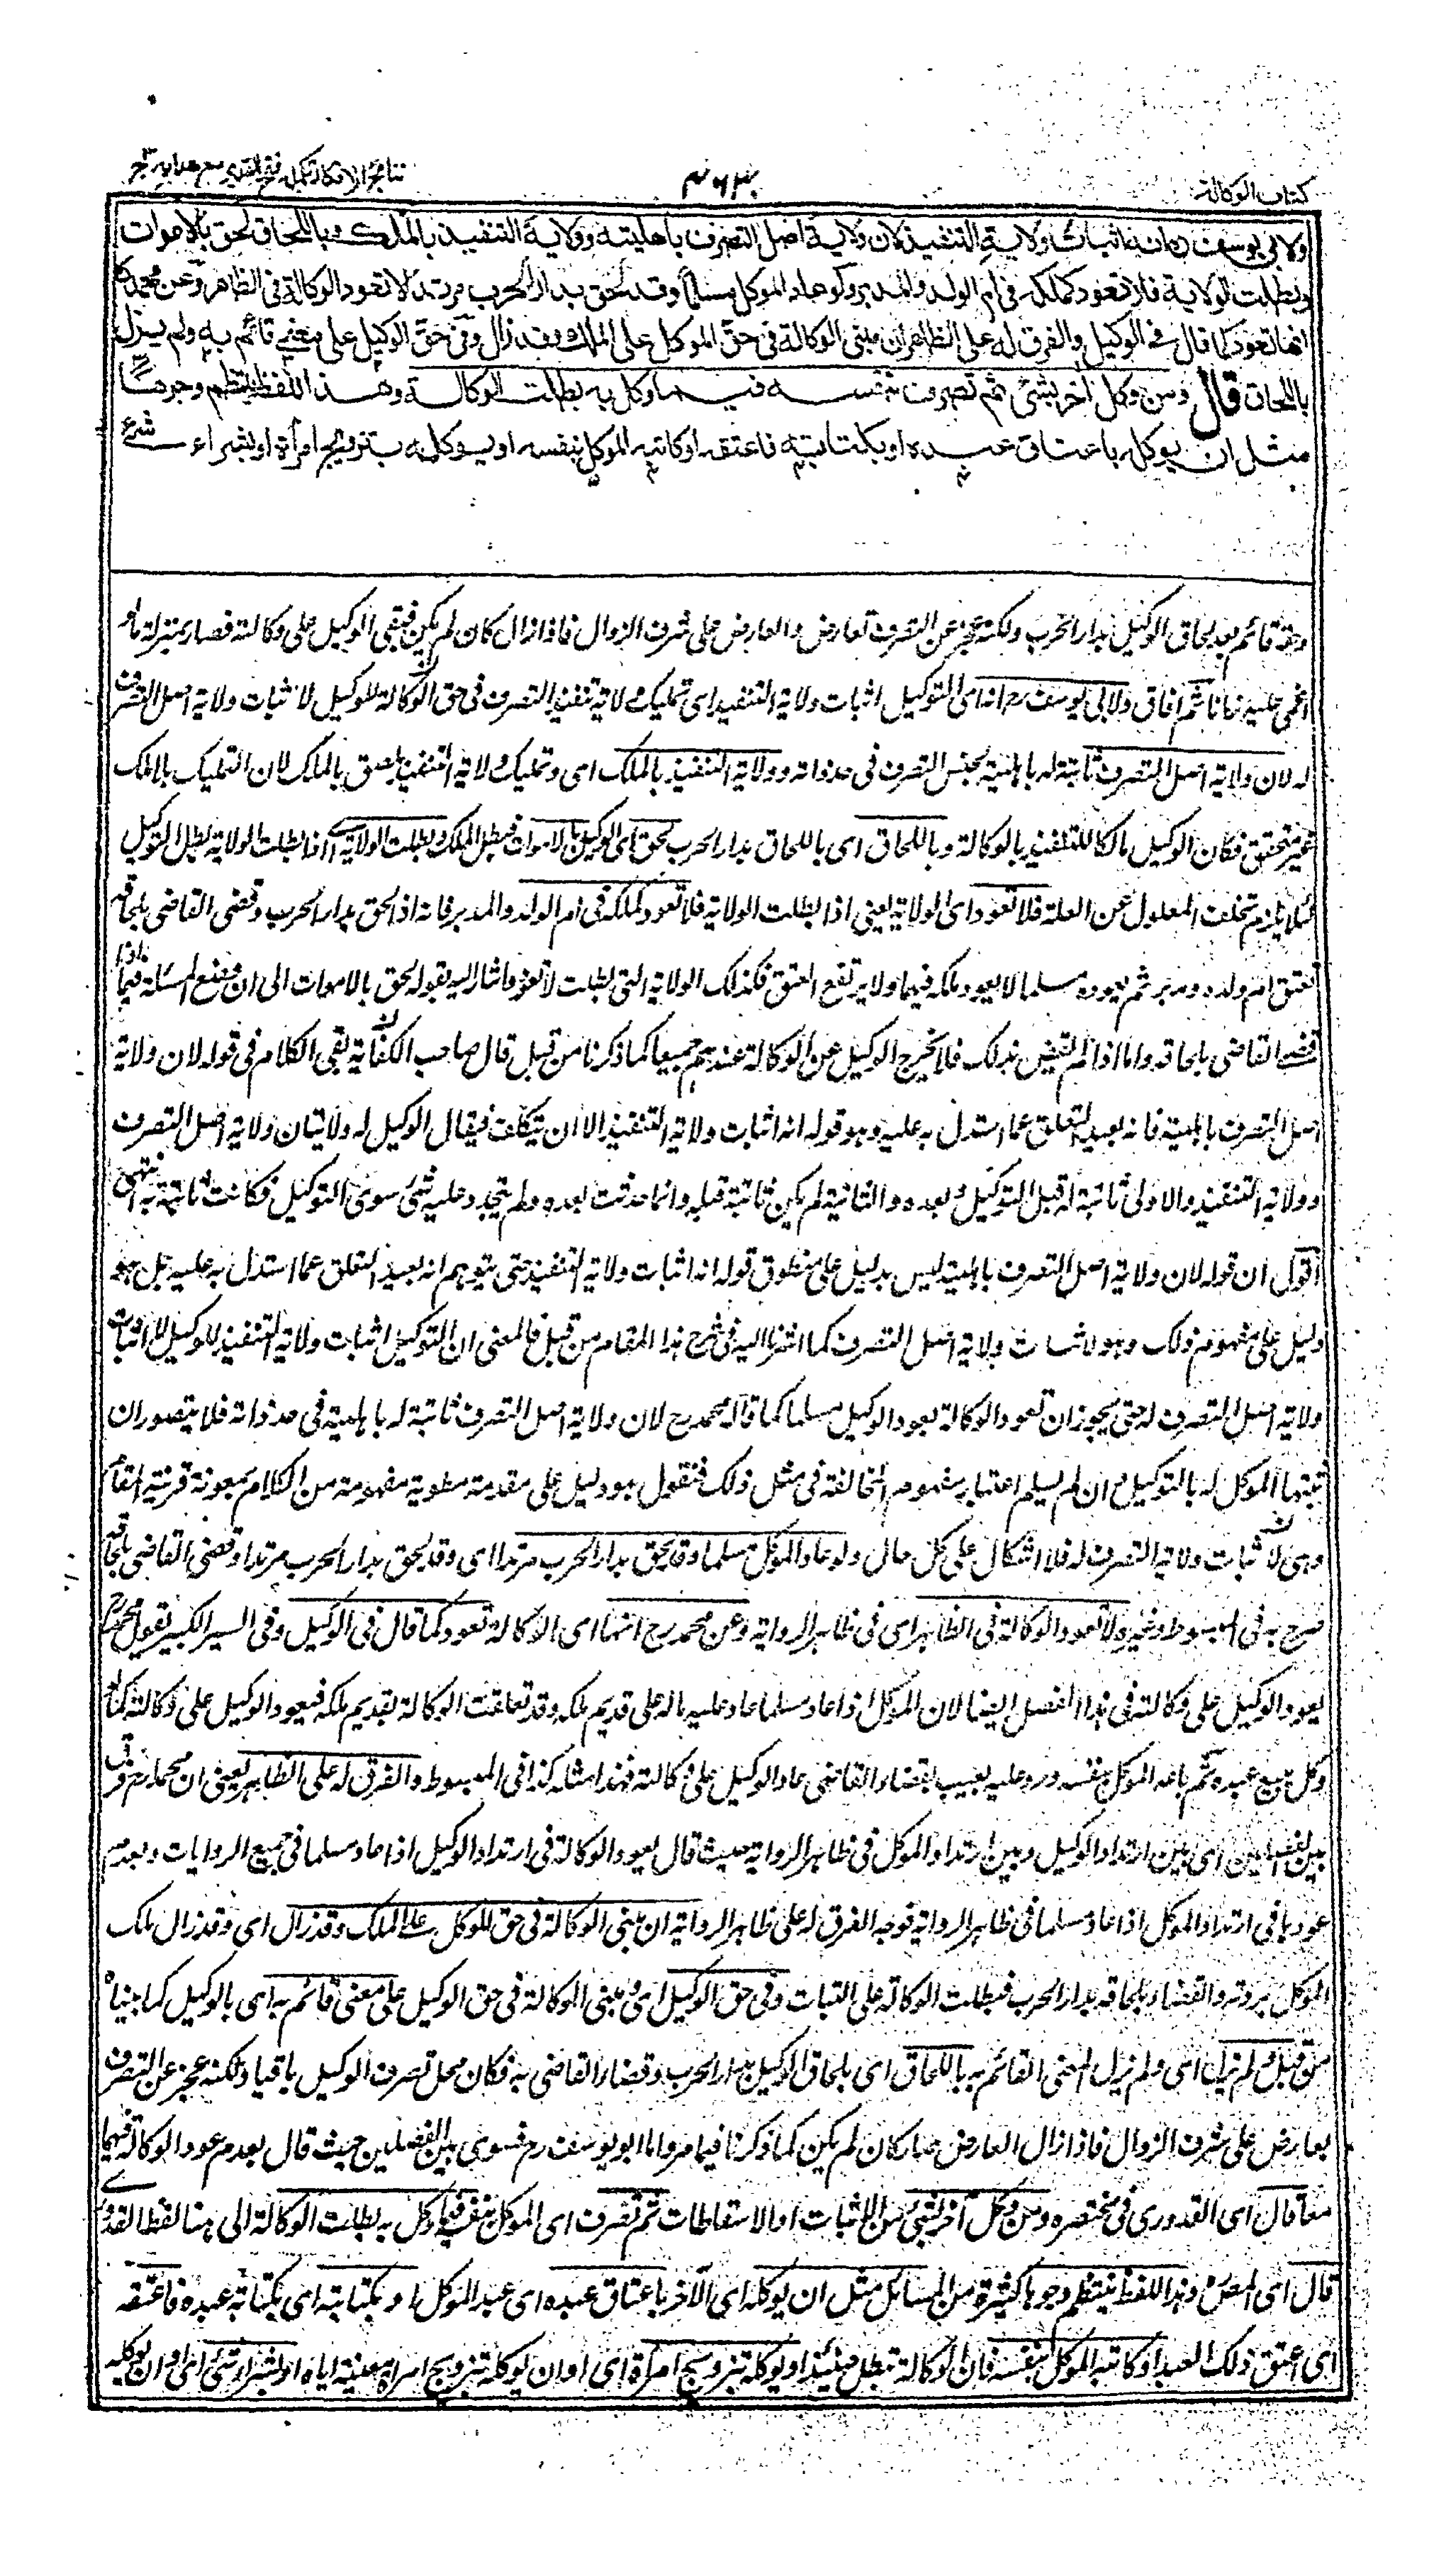 كتاب الوكالة
نتائج الافكار تكملة فتح القدير مع هداية ج ٣
ولابى يوسف رح انه اثبات ولاية التنفيذ لان ولاية اصل التصرف باهليته وولاية التنفيذ بالملك وباللحاق لحق بالاموات
وبطلت الولاية فلا تعود كملكه فى ام الولد والمدبر ولو عاد الموكل مسلما وقد لحق بدار الحرب مرتدا لا تعود الوكالة فى الظاهر وعن محمد رح
انها تعود كما قال فى الوكيل والفرق له على الظاهر ان مبنى الوكالة فى حق الموكل على الملك وقد زال وفى حق الوكيل على معنى قائم به ولم يزل
باللحاق قال ومن وكل آخر بشئ ثم تصرف بنفسه فيما وكل به بطلت الوكالة وهذا اللفظ ينتظم وجوها
مثل ان يوكله باعتاق عبده او بكتابته فاعتقه او كاتبه الموكل بنفسه او يوكله بتزويج امرأة او بشراء شئ
وهو قائم بعد لحاق الوكيل بدار الحرب ولكنه عجز عن التصرف لعارض والعارض على شرف الزوال فاذا زال كان لم يكن فبقى الوكيل على وكالته فصار بمنزلة ما لو
اغمى عليه زمانا ثم افاق ولابى يوسف رح انه اى التوكيل اثبات ولاية التنفيذ اى تمليك ولاية تنفيذ التصرف فى حق الوكالة للوكيل لا اثبات ولاية اصل التصرف
له لان ولاية اصل التصرف ثابتة له باهليته لجنس التصرف فى حد ذاته وولاية التنفيذ بالملك اى وتمليك ولاية التنفيذ يلصق بالملك لان التمليك بلا ملك
غير متحقق فكان الوكيل مالكا للتنفيذ بالوكالة وباللحاق اى باللحاق بدار الحرب لحق اى الوكيل بالاموات فبطل الملك وبطلت الولاية اى اذا بطلت الولاية بطل التوكيل
لئلا يلزم تخلف المعلول عن العلة فلا تعود اى الولاية يعنى اذا بطلت الولاية فلا تعود كملكه فى ام الولد والمدبر فانه اذا لحق بدار الحرب وقضى القاضى بلحاقه
تعتق ام ولده ومدبره ثم بعوده مسلما لا يعود ملكه فيهما ولا يرتفع العتق فكذلك الولاية التى بطلت لا تعود واشار اليه بقوله لحق بالاموات الى ان وضع المسئلة فيما اذا
قضى القاضى بلحاقه واما اذا لم يقض بذلك فلا يخرج الوكيل عن الوكالة عندهم جميعا كما ذكرنا من قبل قال صاحب الكفاية بقى الكلام فى قوله لان ولاية
اصل التصرف باهليته فانه بعيد التعلق عما استدل به عليه وهو قوله انه اثبات ولاية التنفيذ الا ان يتكلف فيقال الوكيل له ولايتان ولاية اصل التصرف
وولاية التنفيذ والاولى ثابتة له قبل التوكيل وبعده والثانية لم يكن ثابتة قبله وانما حدثت بعده ولم يتجدد عليه شئ سوى التوكيل فكانت ثابتة به انتهى
اقول ان قوله لان ولاية اصل التصرف باهليته ليس بدليل على منطوق قوله انه اثبات ولاية التنفيذ حتى يتوهم انه بعيد التعلق عما استدل به عليه بل هو
دليل على مفهوم ذلك وهو لا اثبات ولاية اصل التصرف كما اشرنا اليه فى شرح هذا المقام من قبل فالمعنى ان التوكيل اثبات ولاية التنفيذ للوكيل لا اثبات
ولاية اصل التصرف له حتى يجوز ان تعود الوكالة بعود الوكيل مسلما كما قاله محمد رح لان ولاية اصل التصرف ثابتة له باهليته فى حد ذاته فلا يتصور ان
يثبتها الموكل له بالتوكيل وان لم يسلم اعتبار مفهوم المخالفة فى مثل ذلك فنقول هو دليل على مقدمة مطوية مفهومة من الكلام بمعونة قرينة المقام
وهى لا اثبات ولاية التصرف له فلا اشكال على كل حال ولو عاد الموكل مسلما وقد لحق بدار الحرب مرتدا اى وقد لحق بدار الحرب مرتدا وقضى القاضى بلحاقه
صرح به فى المبسوط وغيره لا تعود الوكالة فى الظاهر اى فى ظاهر الرواية وعن محمد رح انها اى الوكالة تعود كما قال فى الوكيل وفى السير الكبير يقول محمد رح
يعود الوكيل على وكالته فى هذا الفصل ايضا لان الموكل اذا عاد مسلما عاد عليه ماله على قديم ملكه وقد تعلقت الوكالة بقديم ملكه فيعود الوكيل على وكالته كما لو
وكل ببيع عبده ثم باعه الموكل بنفسه ورد عليه بعيب بقضاء القاضى عاد الوكيل على وكالته فهذا مثله كذا فى المبسوط والفرق له على الظاهر يعنى ان محمدا رح فرق
بين الفصلين اى بين ارتداد الوكيل وبين ارتداد الموكل فى ظاهر الرواية حيث قال بعود الوكالة فى ارتداد الوكيل اذا عاد مسلما فى جميع الروايات وبعدم
عودها فى ارتداد الموكل اذا عاد مسلما فى ظاهر الرواية فوجه الفرق له على ظاهر الرواية ان مبنى الوكالة فى حق الموكل على الملك وقد زال اى وقد زال ملك
الموكل بردته والقضاء بلحاقه بدار الحرب فبطلت الوكالة على الثبات وفى حق الوكيل اى ومبنى الوكالة فى حق الوكيل على معنى قائم به اى بالوكيل كما بيناه
من قبل ولم يزل اى ولم يزل المعنى القائم به باللحاق اى بلحاق الوكيل بدار الحرب وقضاء القاضى به فكان محل تصرف الوكيل باقيا ولكنه عجز عن التصرف
بعارض على شرف الزوال فاذا زال العارض صار كان لم يكن كما ذكرنا فيما مر واما ابو يوسف رح فسوى بين الفصلين حيث قال بعدم عود الوكالة فيهما
معا قال اى القدورى فى مختصره ومن وكل آخر بشئ من الاثبات او الاسقاطات ثم تصرف اى الموكل بنفسه فيما وكل به بطلت الوكالة الى هنا لفظ القدورى
قال اى المص رح وهذا اللفظ ينتظم وجوها كثيرة من المسائل مثل ان يوكله اى الآخر باعتاق عبده اى عبد الموكل او بكتابته اى بكتابة عبده فاعتقه
اى اعتق ذلك العبد او كاتبه الموكل بنفسه فان الوكالة تبطل حينئذ او يوكله بتزويج امرأة اى او ان يوكله بتزويج امرأة معينة اياه او بشراء شئ اى او ان يوكله